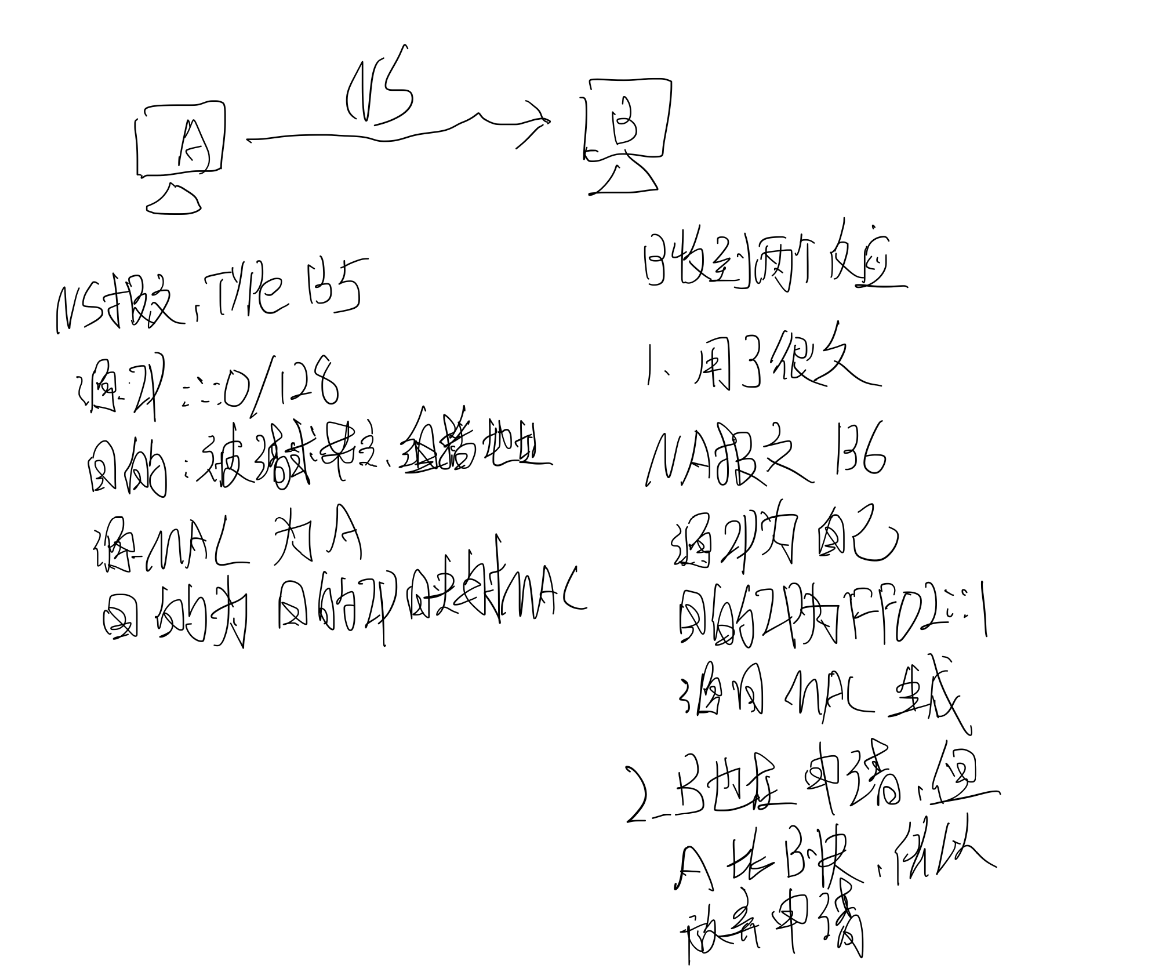 NS
A
B
NS报文,TYPe 135
源IP :::0/128
目的:被请求节点组播地址
源MAC 为A
目的为 目的IP映射MAC
B收到两个反应
1、用了很久
NA报文 136
源IP为自己
目的IP为FF02::1
源目 MAC 生成
2 B也在申请,但
A 比B快,所以
放弃申请